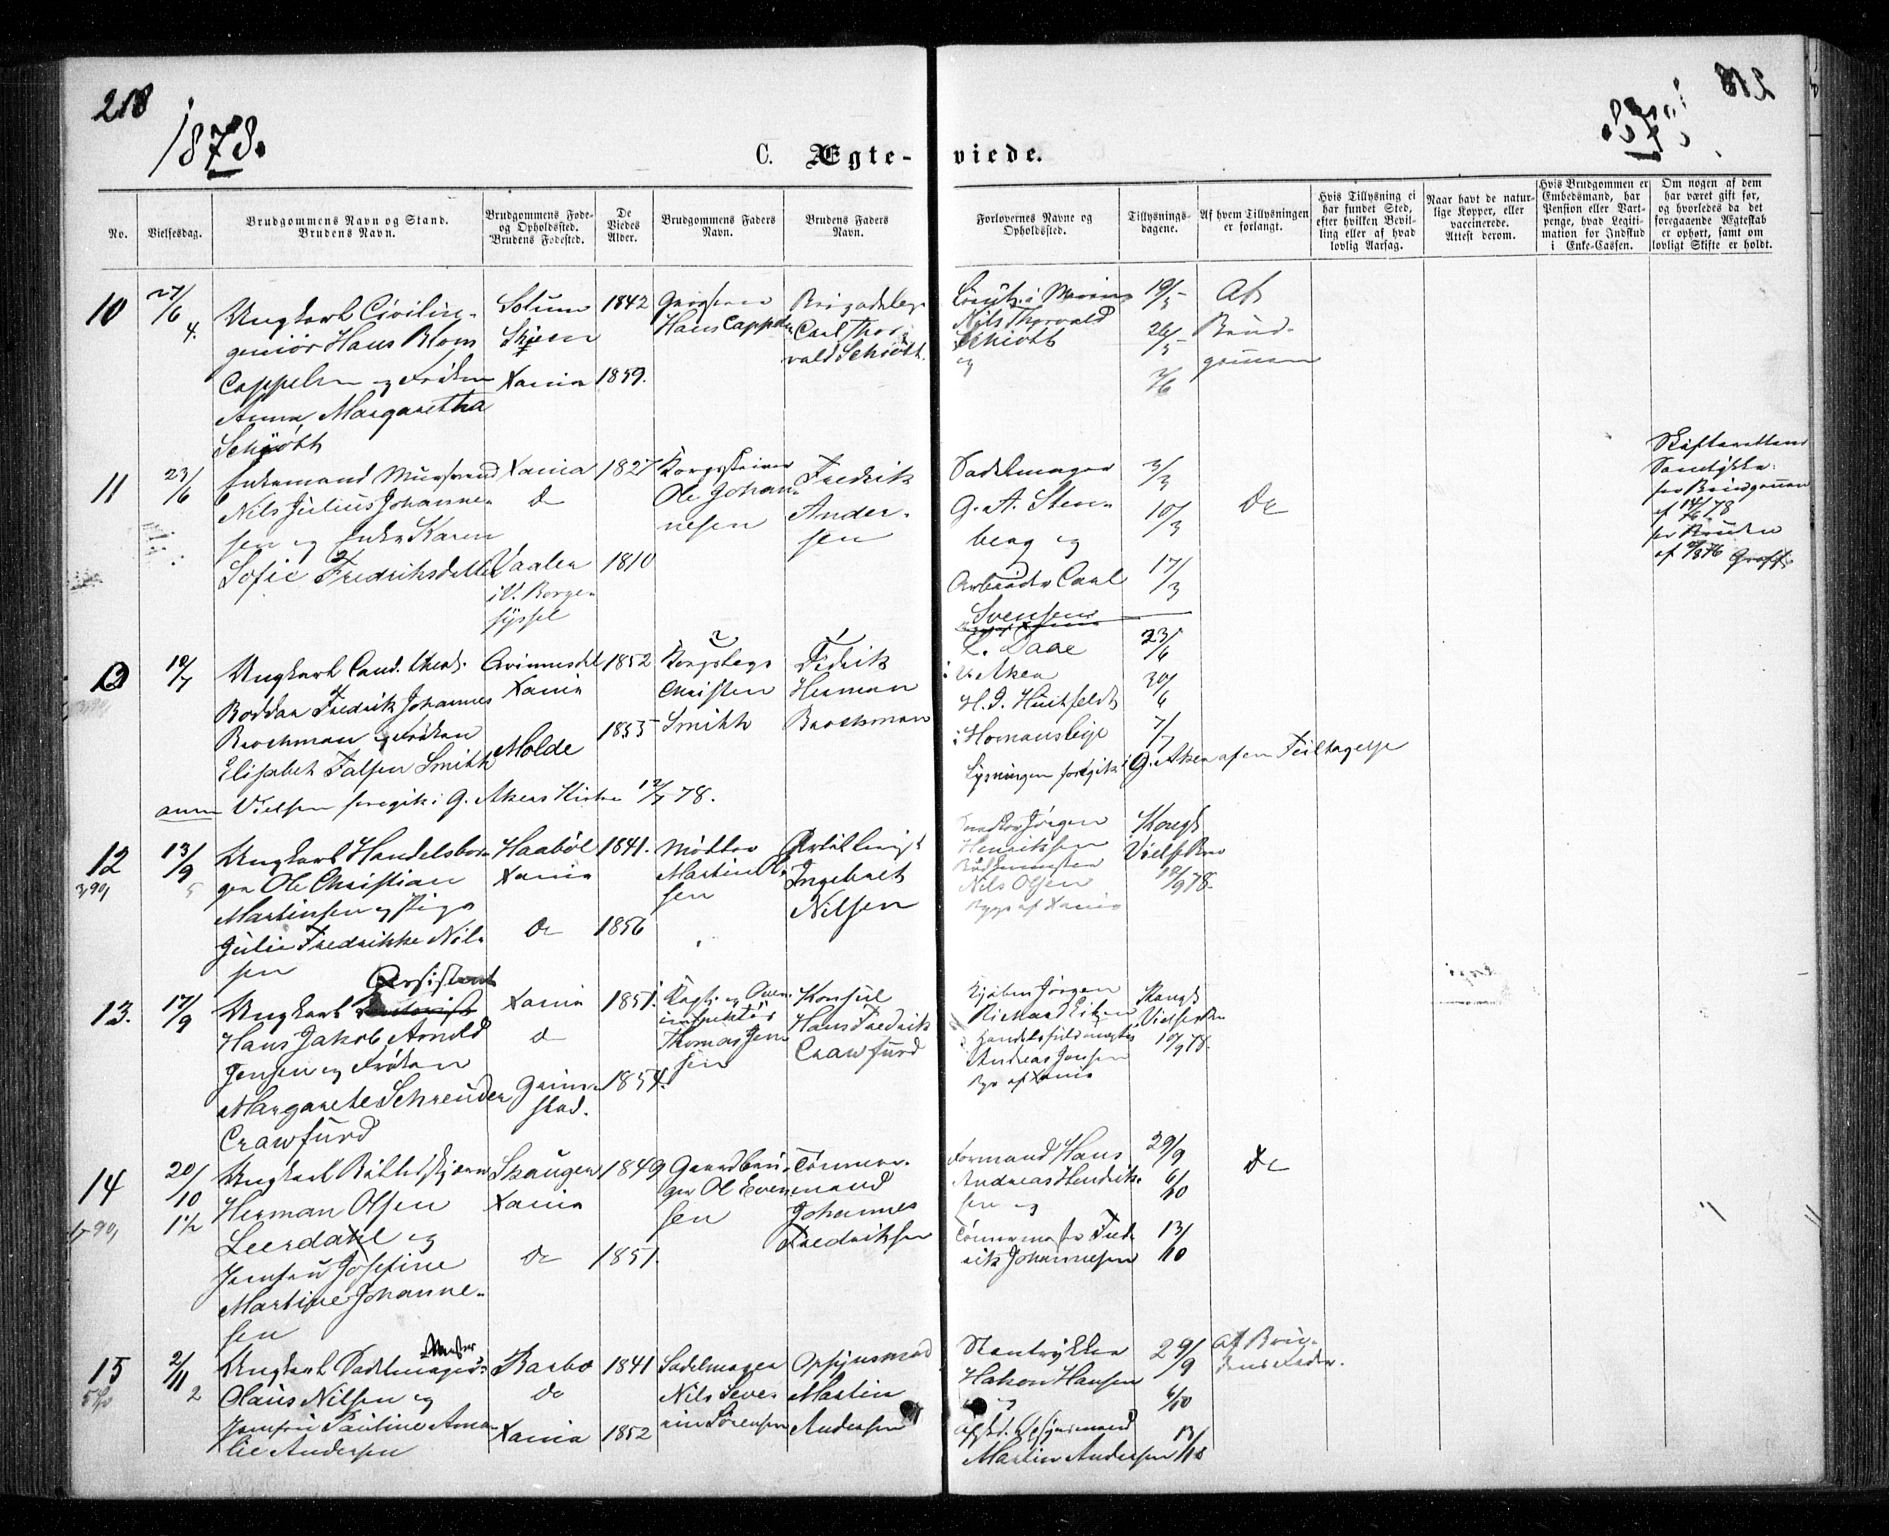 218
1878.
C. Ægte-
viede.
218
No.
Vielsesdag.
Brudgommens Navn og Stand.
Brudens Navn.
Brudgommens Føde-
og Opholdssted.
Brudens Fødested.
De
Viedes
Alder.
Brudgommens Faders
Navn.
Brudens Faders
Navn.
Forlovernes Navne og
Opholdssted.
Tillysnings-
dagene.
Af hvem Tillysningen
er forlangt.
Hvis Tillysning ei
har fundet Sted,
efter hvilken Bevil-
ling eller af hvad
lovlig Aarsag.
Naar havt de natur-
lige Kopper, eller
vaccinerede.
Attest derom.
Hvis Brudgommen er
Embedsmand, har
Pension eller Vart-
penge, hvad Legiti-
mation for Indskud
i Enke-Cassen.
Om nogen af dem
har været gift før,
og hvorledes da det
foregaaende Ægteskab
er ophørt, samt om
lovligt Skifte er holdt.
10
27/6
4.
Ungkarl Civilin-
geniör Hans Blom
Cappelen og Frøken
Anna Margaretha
Schiøtt
Solum
Skien
Xania
1842
1859.
Hans Cappelen
Carl Thor-
vald Schiøtt.
Nils Thorvald
Schiøtt
og
19/5
26/5
2/6
Af
Brud-
gommen
11
23/6
Enkemand Muursvend
Nils Julius Johanne-
sen og Enke Karen
Sofie Fredriksdatter
Xania
do
Vaaler
i V. Borge-
syssel
1827
1810
Ole Johan-
nesen
Fredrik
Ander-
sen
Sadelmager
G. A. Steen-
berg og
Arbeider Carl
Svensen
3/3
10/3
17/3
Do
Skifterettens
Samtykke
for Brudgommen
af 14/6 78
for Bruden
af
12
10/7
Ungkarl Cand. theol.
Boddar Fredrik Johannes
Barchman og Frøken
Elisabet Falsen Smith
Qvinnesdal
Xania
Molde
1852
1855
Christen
Smith
Fredrik
Herman
Barchman
L. Daae
i V. Aker
H. J. Huitfeldt
i Homansbye
23/6
30/6
7/7
Lysningen foregik i G. Aker af en Feiltagelse
anm Vielsen foregik i G. Akers Kirke 12/7 78.
12
13/9
5
Ungkarl Handelsbor-
ger Ole Christian
Martinsen og Pige
Julie Fredrikke Nil-
sen
Haabøl
Xania
do
1841.
1856
Møller
Martin Ol-
sen
Ingebret
Nilsen
Jørgen
Henriksen
Nils Olsen
Begge af Xania
Kongl
Vielsesbrev
10/9 78.
13.
17/9
Assistent
Ungkarl
Hans Jakob Arnold
Jensen og Frøken
Margarete Schreuder
Crawfurd
Xania
do
Grim-
stad.
1851.
1854.
Thomas Jen-
sen
Konsul
Hans Fredrik
Crawfurd
Kjøbm Jørgen
Richard
Andreas Jensen
Bge af Xania
Kongl
Vielsesbrev
10/9 78.
14
20/10
1½
Ungkarl
Herman Olsen
Leerdahl og
Jomfru Josefine
Martine Johanne-
sen
Skaugen
Xania
do
1849
1851.
Gaardbru-
ger Ol Even-
sen
Tømmer-
mand
Johannes
Fredriksen
Formand Hans
Andreas Hendrik-
sen og
Tømmerm. Fred-
rik Johannesen
29/9
6/10
13/10
do
15
2/11
2
Mester
Ungkarl Sadelmager-
Olaus Nilsen og
Jomfru Pauline Ama-
lie Andersen
Barbo
do
Xania
1841
1852
Sadelmager
Nils Seve-
rin Sørensen
Opsynsmand
Martin
Andersen
Stentrykker
Hakon Hansen
og
Opsynsmand
Martin Andersen
29/9
6/10
13/10
Af Bru-
dens Fader.